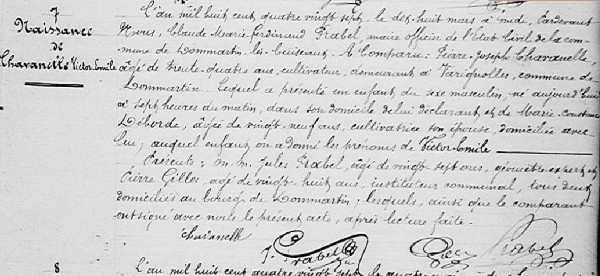 7
Naissance
de
Chavanelle Victor-Emile
L'an mil huit cent quatre vingt sept, le dix-huit mars à midi, Pardevant
Nous, Claude-Marie-Ferdinand Prabel, maire officier de l'Etat Civil de la com-
mune de Dommartin-lès-Cuiseaux. A Comparu : Pierre-Joseph Chavanelle,
âgé de trente-quatre ans, cultivateur, demeurant à Varignolles, commune de
Dommartin. Lequel a présenté un enfant du sexe masculin, né aujourd'hui
à sept heures du matin, dans son domicile de lui déclarant, et de Marie-Constance
Déborde, âgée de vingt-neuf ans, cultivatrice son épouse, domiciliée avec
lui ; auquel enfant on a donné les prénoms de Victor-Emile
Présents : m. m. Jules Prabel, âgé de vingt-sept ans, géomètre expert, et
Pierre Gilles, agé de vingt-huit ans, instituteur communal, tous deux
domiciliés au bourg de Dommartin ; lesquels, ainsi que le comparant
ont signé avec nous le présent acte, après lecture faite.
Chavanelle
J. Prabel
Prabel
8
L'an mil huit cent quatre vingt sept le quatre